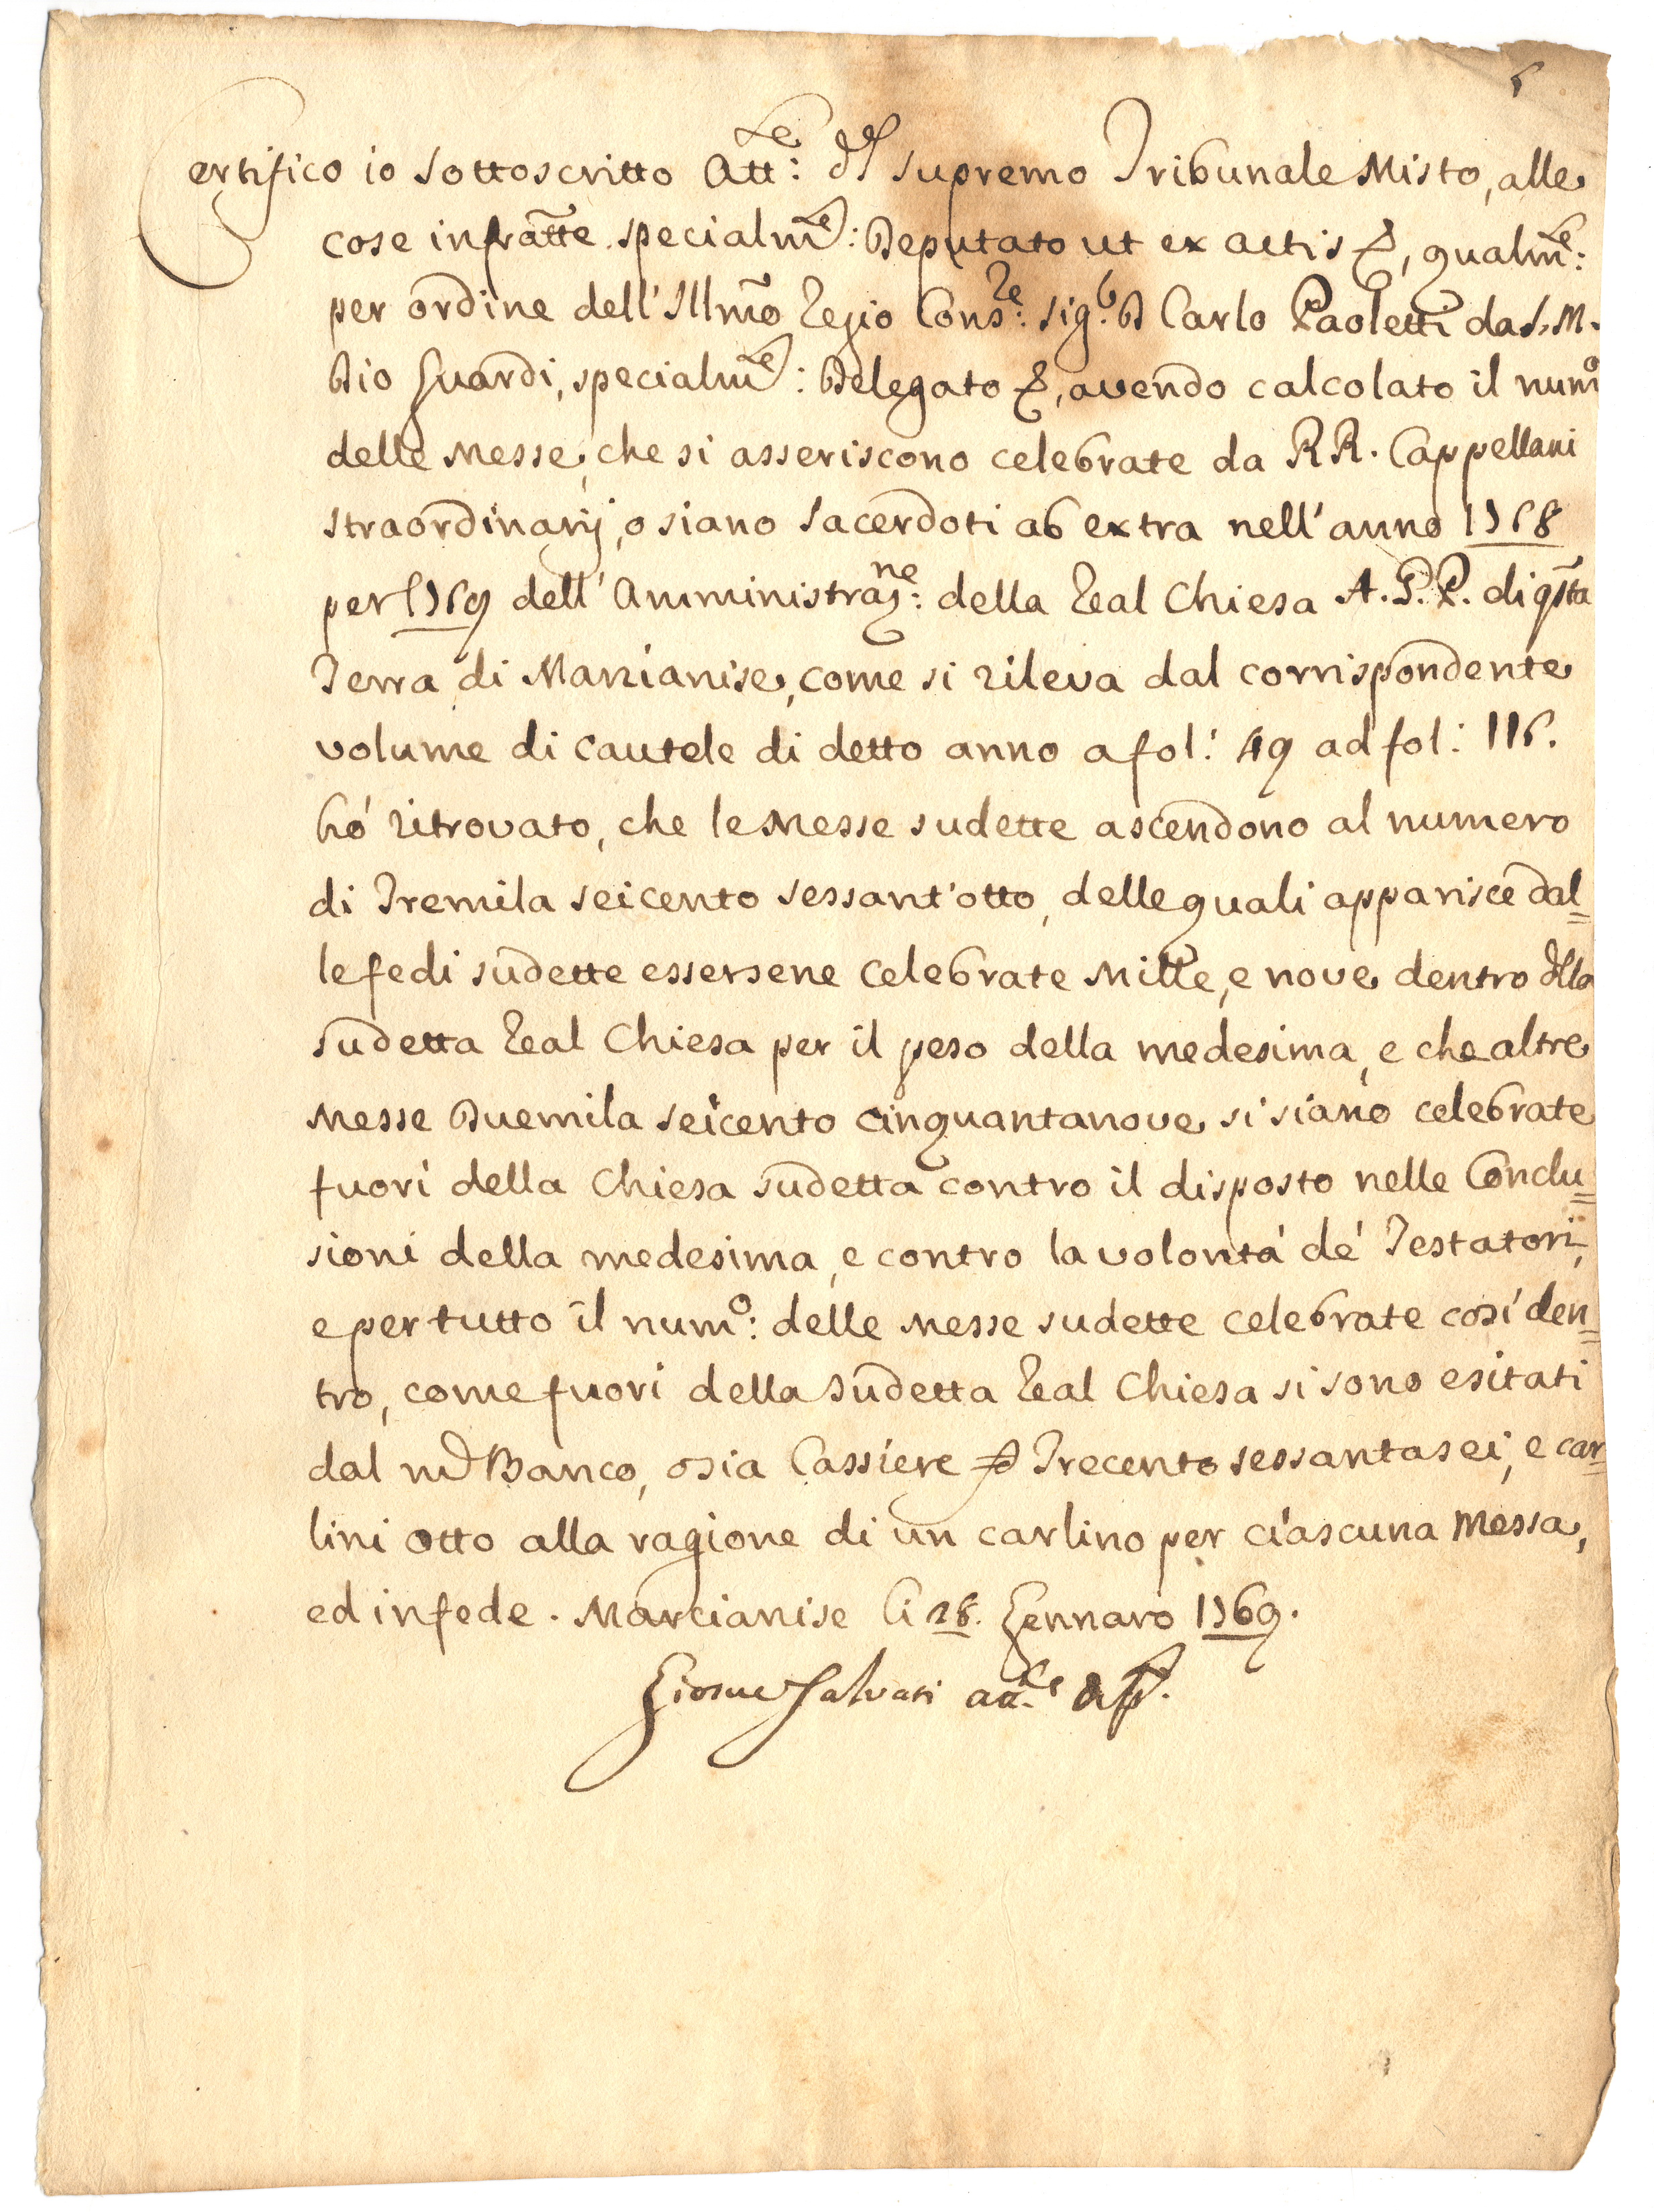 6
Certifico io sottoscritto Att:te del supremo Tribunale Misto, alle
cose infratte specialm:te Deputato ut ex actis &, qualm:te
per ordine dell'Illmo Regio Cons:re Sig:r D Carlo Paoletti da S. M.
Dio Guardi, specialm:te Delegato &, avendo calcolato il numo
delle Messe, che si asseriscono celebrate da RR. Cappellani
straordinarij, o siano Sacerdoti ab extra nell'anno 1768
per 1769 dell'Amministraz:ne della Real Chiesa A. G. P. di qsta
Terra di Marzianise, come si rileva dal corrispondente
volume di cautele di detto anno a fol: 49 ad fol: 116.
hó ritrovato, che le Messe sudette ascendono al numero
di Tremila seicento sessant'otto, delle quali apparisce dal=
le fedi sudette essersene celebrate Mille, e nove dentro dlla
sudetta Real Chiesa per il peso della medesima, e che altre
Messe Duemila seicento cinquantanove si siano celebrate
fuori della Chiesa sudetta contro il disposto nelle Conclu=
sioni della medesima, e contro la volontá dé Testatori,
e per tutto il num:o delle Messe sudette celebrate cosí den=
tro, come fuori della sudetta Real Chiesa si sono esitati
dal Banco, osia Cassiere Trecento sessantasei, e car=
lini otto alla ragione di un carlino per ciascuna Messa,
ed in fede. Marcianise li 28. Gennaro 1769.
Giosue Salvati